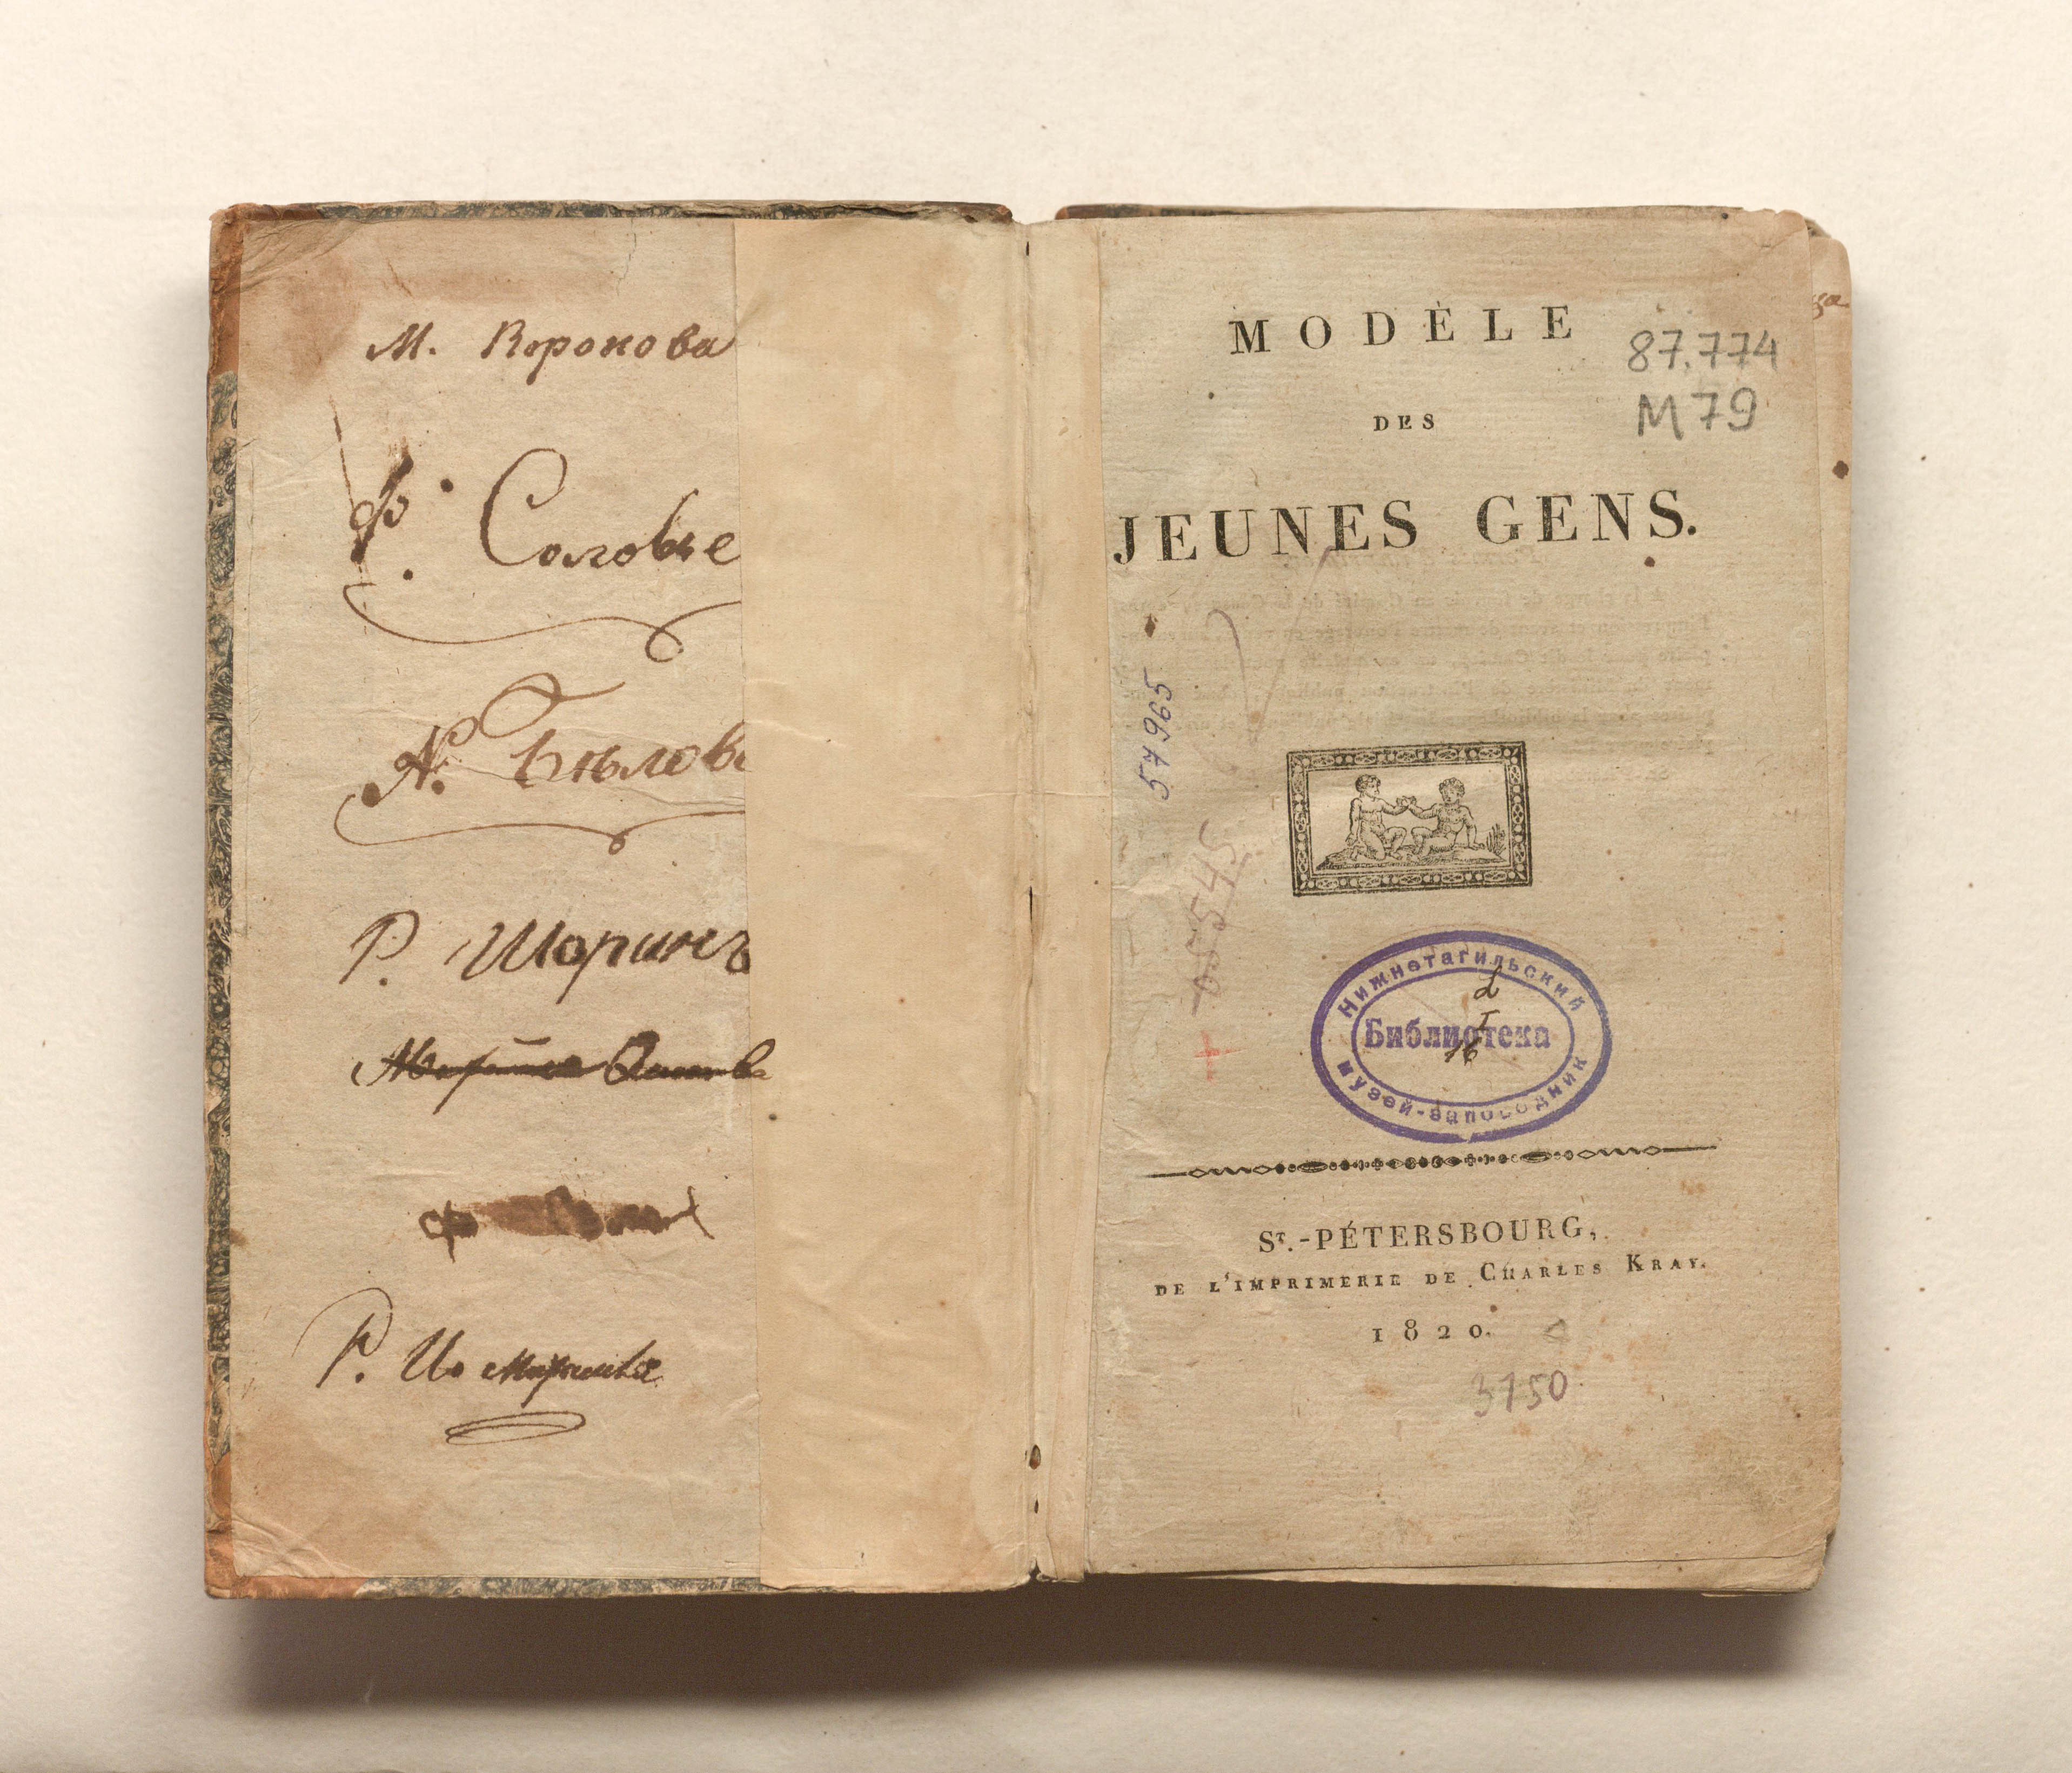 М. Воронова
Ф. Соловье
А. Бѣлов
Р. Шоринъ
Р.
MODÈLE
DES
JEUNES GENS.
87.774
М79
57965
5545
Нижнетагильский
Библиотека
музей-заповедник
16
ST.-PÉTERSBOURG,
DE L'IMPRIMERIE DE CHARLES KRAY.
1820.
3150